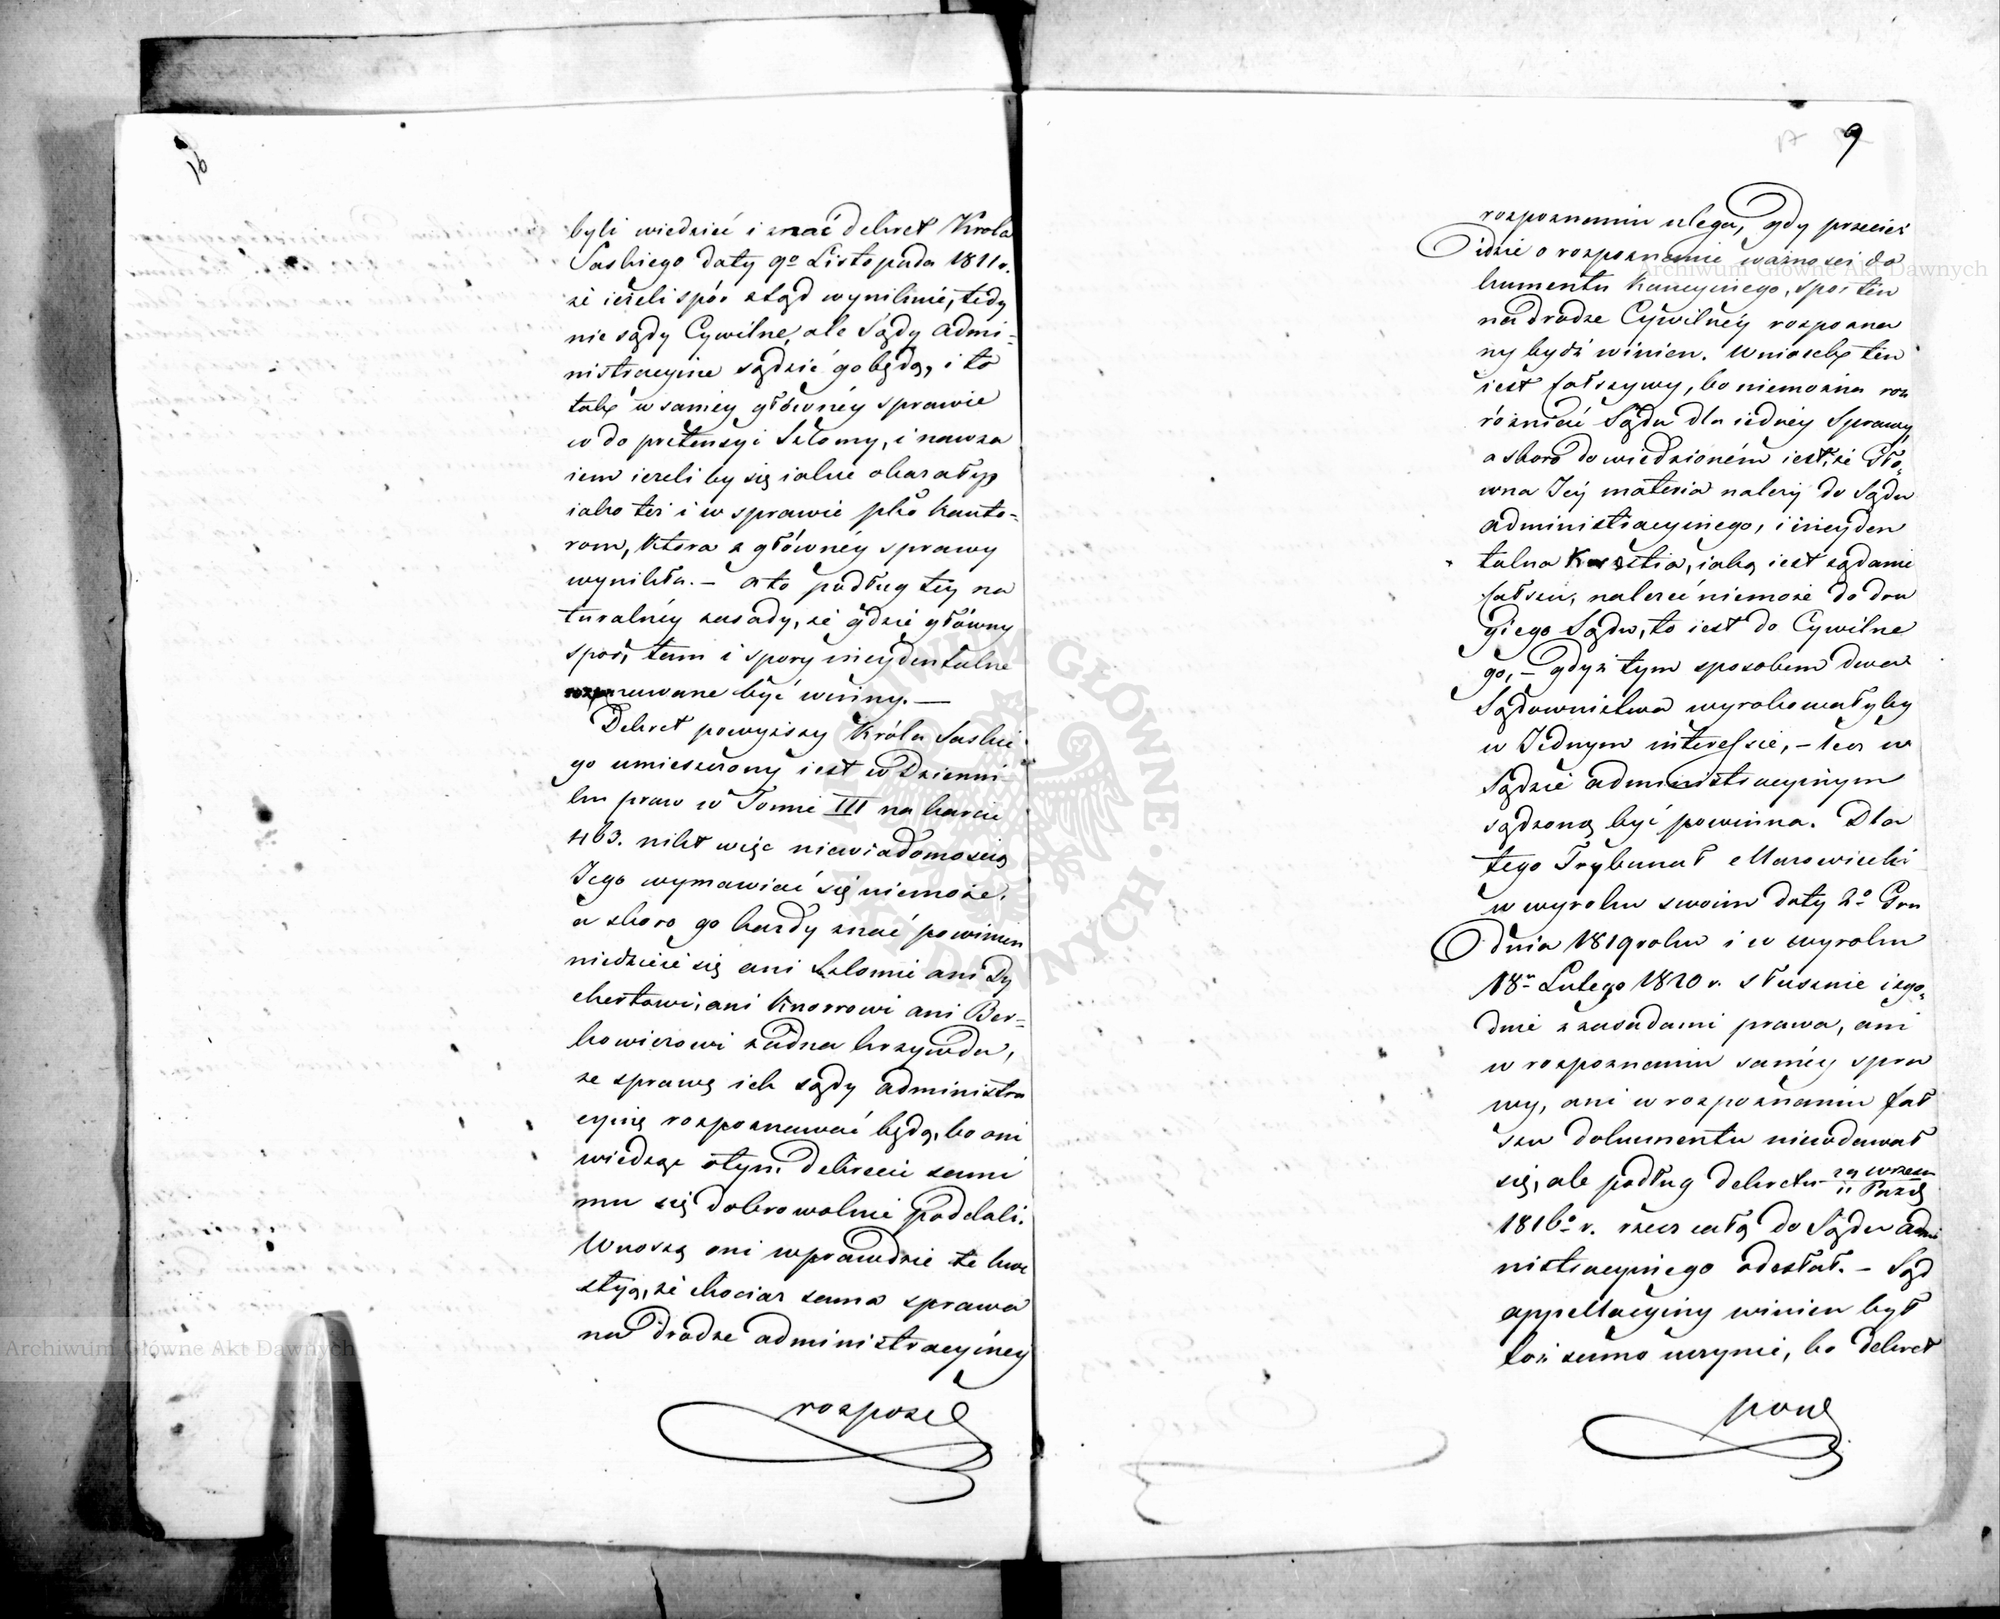 byli wiedzieć i znać dekret Króla
Saskiego daty 9º Listopada 1811 r.
że ieżeli spór ztąd wyniknie, tedy
nie sądy Cywilne, ale Sądy admi-
nistracyine sądzić go będą, i to
tak w samey głównéy sprawie
w do pretensyi Szlomy, i nawza
iem ieżeli by się iakie okazały,
iako też i w sprawie pko Kanto-
rom, która z głównéy sprawy
wynikła. — a to podług téy na
turalnéy zasady, że gdzie główny
spór, tam i spory incydentalne
być winny. —
Dekret powyższy Króla Saskie
go umieszczony iest w Dzienni
ku praw w Tomie III na karcie
463. nikt więc niewiadomością
Jego wymawiać się niemoże.
a skoro go każdy znać powinien
niedzieie się ani Szlomie ani Dy
chertowi, ani Knorrowi ani Ber-
kowiczowi żadna krzywda,
że sprawę ich sądy administra
cyine rozpoznawać będą, bo oni
wiedząc o tym dekrecie sami
mu się dobrowolnie poddali.
Wnoszą oni wprawdzie te kwe
styą, że chociaż sama sprawa
na drodze administracyinéy
rozpozn
9
rozpoznaniu ulega, gdy przecież
idzie o rozpoznanie ważności do
kumentu kaucyinego, spór ten
na drodze Cywilnéy rozpozna
ny bydź winien. Wniosek ten
iest fałszywy, bo niemożna roz
różniać Sądu dla iednéy Sprawy
a skoro dowiedzioném iest, że Głó-
wna Jéy materia należy do Sądu
administracyinego, i incyden
talna Kwestia, iaką iest żądanie
fałszu, należeć niemoże do dru
giego Sądu, to iest do Cywilne
go, — gdyż tym sposobem dwa
Sądownictwa wyrokowałyby
w Jednym interessie, — lecz w
Sądzie administracyinym
sądzoną być powinna. Dla
tego Trybunał Mazowiecki
w wyroku swoim daty 2º Gru
dnia 1819 roku i w wyroku
18º Lutego 1820 r. słusznie i zgo-
dnie z zasadami prawa, ani
w rozpoznanie saméy spra
wy, ani w rozpoznanie fał
szu dokumentu niewdawał
się, ale podług dekretu 29 wrześn
11 Paźd
1816º r. rzecz całą do Sądu admi
nistracyinego odesłał. — Sąd
appellacyiny winien był
toż samo uczynić, bo dekret
pow
Archiwum Główne Akt Dawnych
Archiwum Główne Akt Dawnych
ARCHIWUM GŁÓWNE AKT DAWNYCH